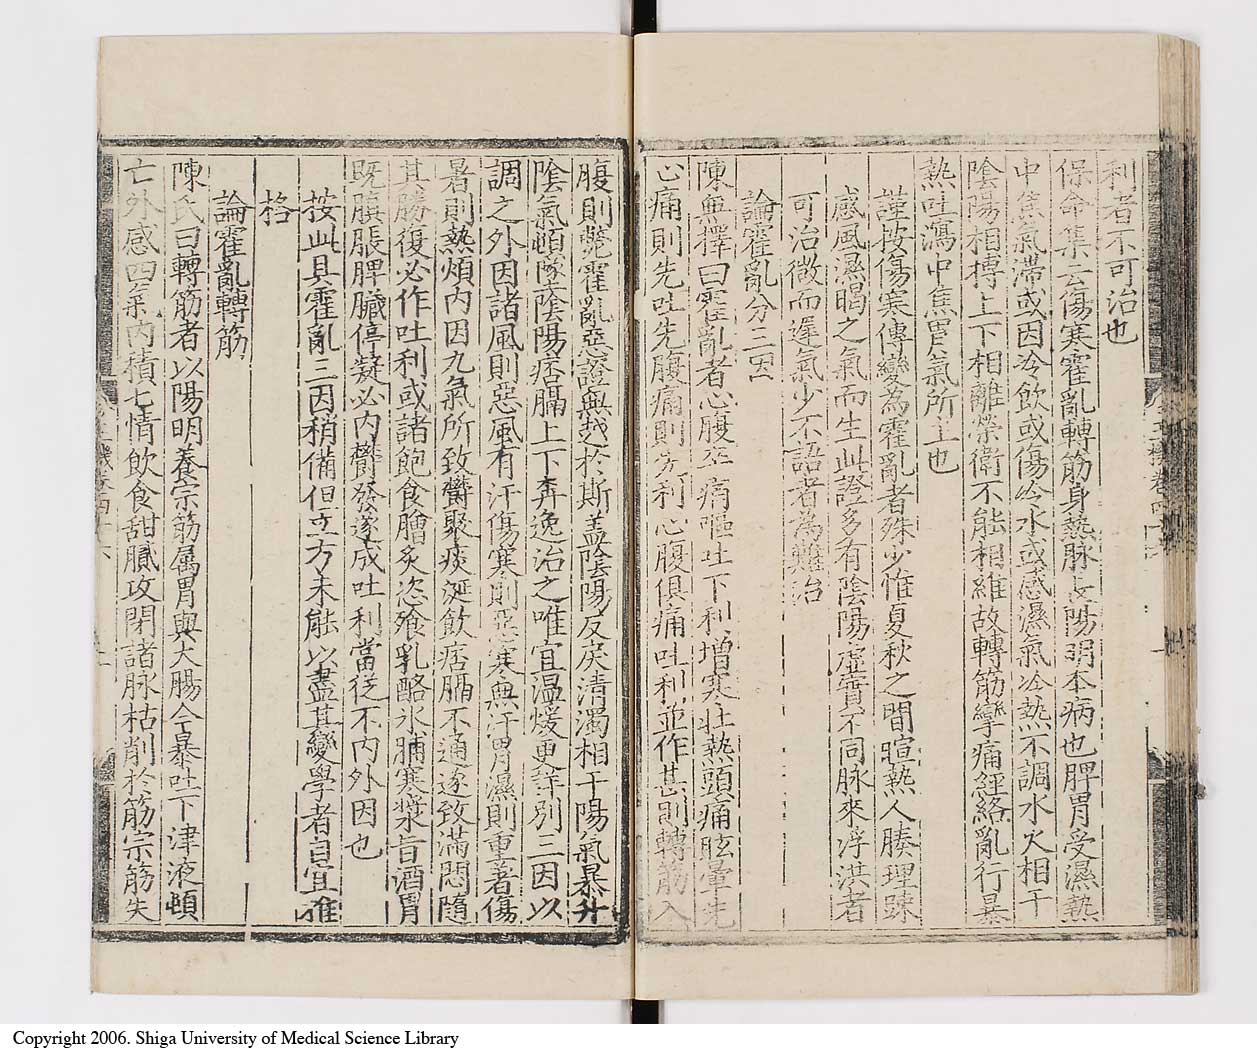 利者不可治也
保命集云傷寒霍亂轉筋身熱脉長陽明本病也脾胃受濕熱
中焦氣滯或因冷飲或傷冷水或感濕氣冷熱不調水火相干
陰陽相搏上下相離榮衛不能相維故轉筋攣痛經絡亂行暴
熱吐瀉中焦胃氣所主也
謹按傷寒傳變為霍亂者殊少惟夏秋之間暄熱人腠理踈
感風濕暍之氣而生此證多有陰陽虛實不同脉來浮洪者
可治微而遲氣少不語者為難治
論霍亂分三因
陳無擇曰霍亂者心腹卒痛嘔吐下利增寒壯熱頭痛眩暈先
心痛則先吐先腹痛則先利心腹俱痛吐利並作甚則轉筋入
腹則斃霍亂惡證無越於斯盖陰陽反戾清濁相干陽氣暴升
陰氣頓墜陰陽痞膈上下奔逸治之唯宜温煖更詳別三因以
調之外因諸風則惡風有汗傷寒則惡寒無汗冐濕則重著傷
暑則熱煩内因九氣所致鬱聚痰涎飲痞膈不通遂致滿悶隨
其勝復必作吐利或諸飽食膾炙恣飱乳酪氷脯寒漿旨酒胃
既䐜脹脾臟停凝必内鬱發遂成吐利當從不内外因也
按此具霍亂三因稍備但立方未能以盡其變學者自宜推
格
論霍亂轉筋
陳氏曰轉筋者以陽明養宗筋属胃與大腸今暴吐下津液頓
亡外感四氣内積七情飲食甜膩攻閉諸脉枯削於筋宗筋失